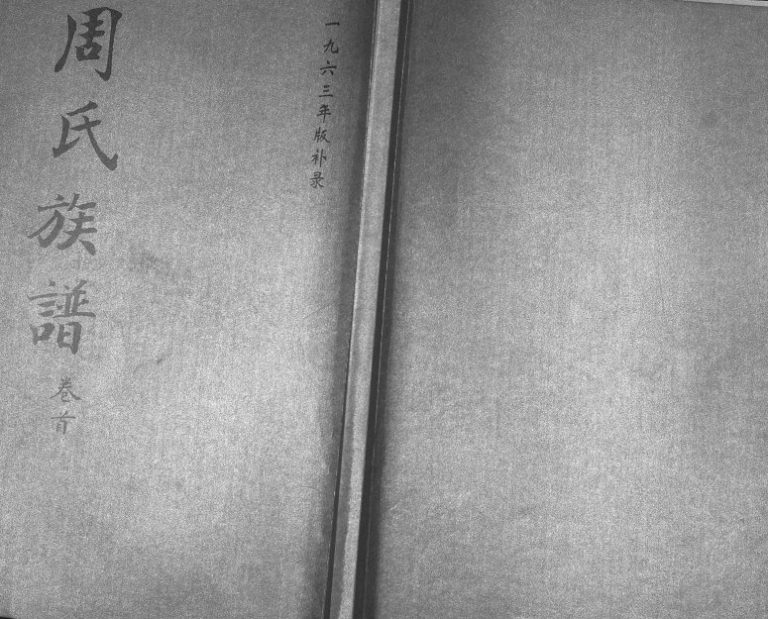 一九六三年版补录
周氏族譜
卷首